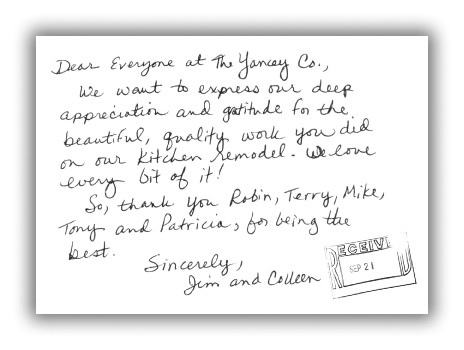 Dear Everyone at The Yancey Co.,
We want to express our deep
appreciation and gratitude for the
beautiful, quality work you did
on our kitchen remodel. We love
every bit of it!
So, thank you Robin, Terry, Mike,
Tony and Patricia, for being the
best.
Sincerely,
Jim and Colleen
RECEIVED
SEP 21